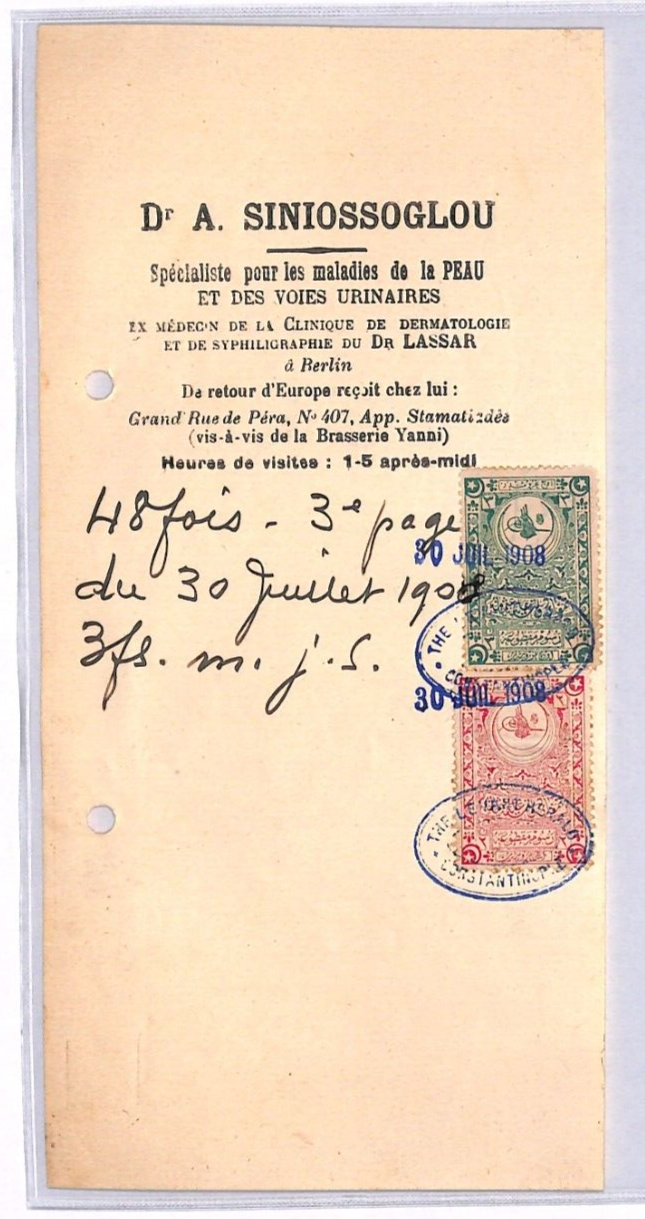 Dr A. SINIOSSOGLOU
Spécialiste pour les maladies de la PEAU
ET DES VOIES URINAIRES
EX MÉDECIN DE LA CLINIQUE DE DERMATOLOGIE
ET DE SYPHILIGRAPHIE DU DR LASSAR
à Berlin
De retour d'Europe reçoit chez lui :
Grand'Rue de Péra, No 407, App. Stamatiadès
(vis-à-vis de la Brasserie Yanni)
Heures de visites : 1-5 après-midi
48 fois - 3e page
du 30 Juillet 1908
3 fs. m. j. S.
30 JUIL 1908
THE LEVANT HERALD
CONSTANTINOPLE
30 JUIL 1908
THE LEVANT HERALD
CONSTANTINOPLE